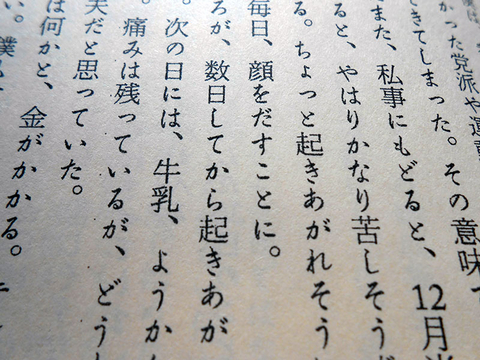 かった党派や運
きてしまった。その意味で
また、私事にもどると、12月
ると、やはりかなり苦しそうだ
る。ちょっと起きあがれそう
毎日、顔をだすことに。
ろが、数日してから起きあが
。次の日には、牛乳、ようか
。痛みは残っているが、どう
夫だと思っていた。
は何かと、金がかかる。
い。僕も